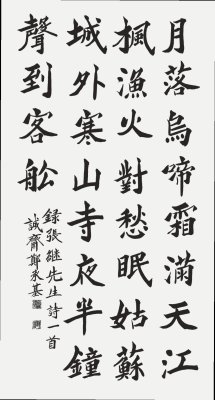 月落烏啼霜滿天江
楓漁火對愁眠姑蘇
城外寒山寺夜半鐘
聲到客舩
錄張継先生詩一首
誠齋鄭永基